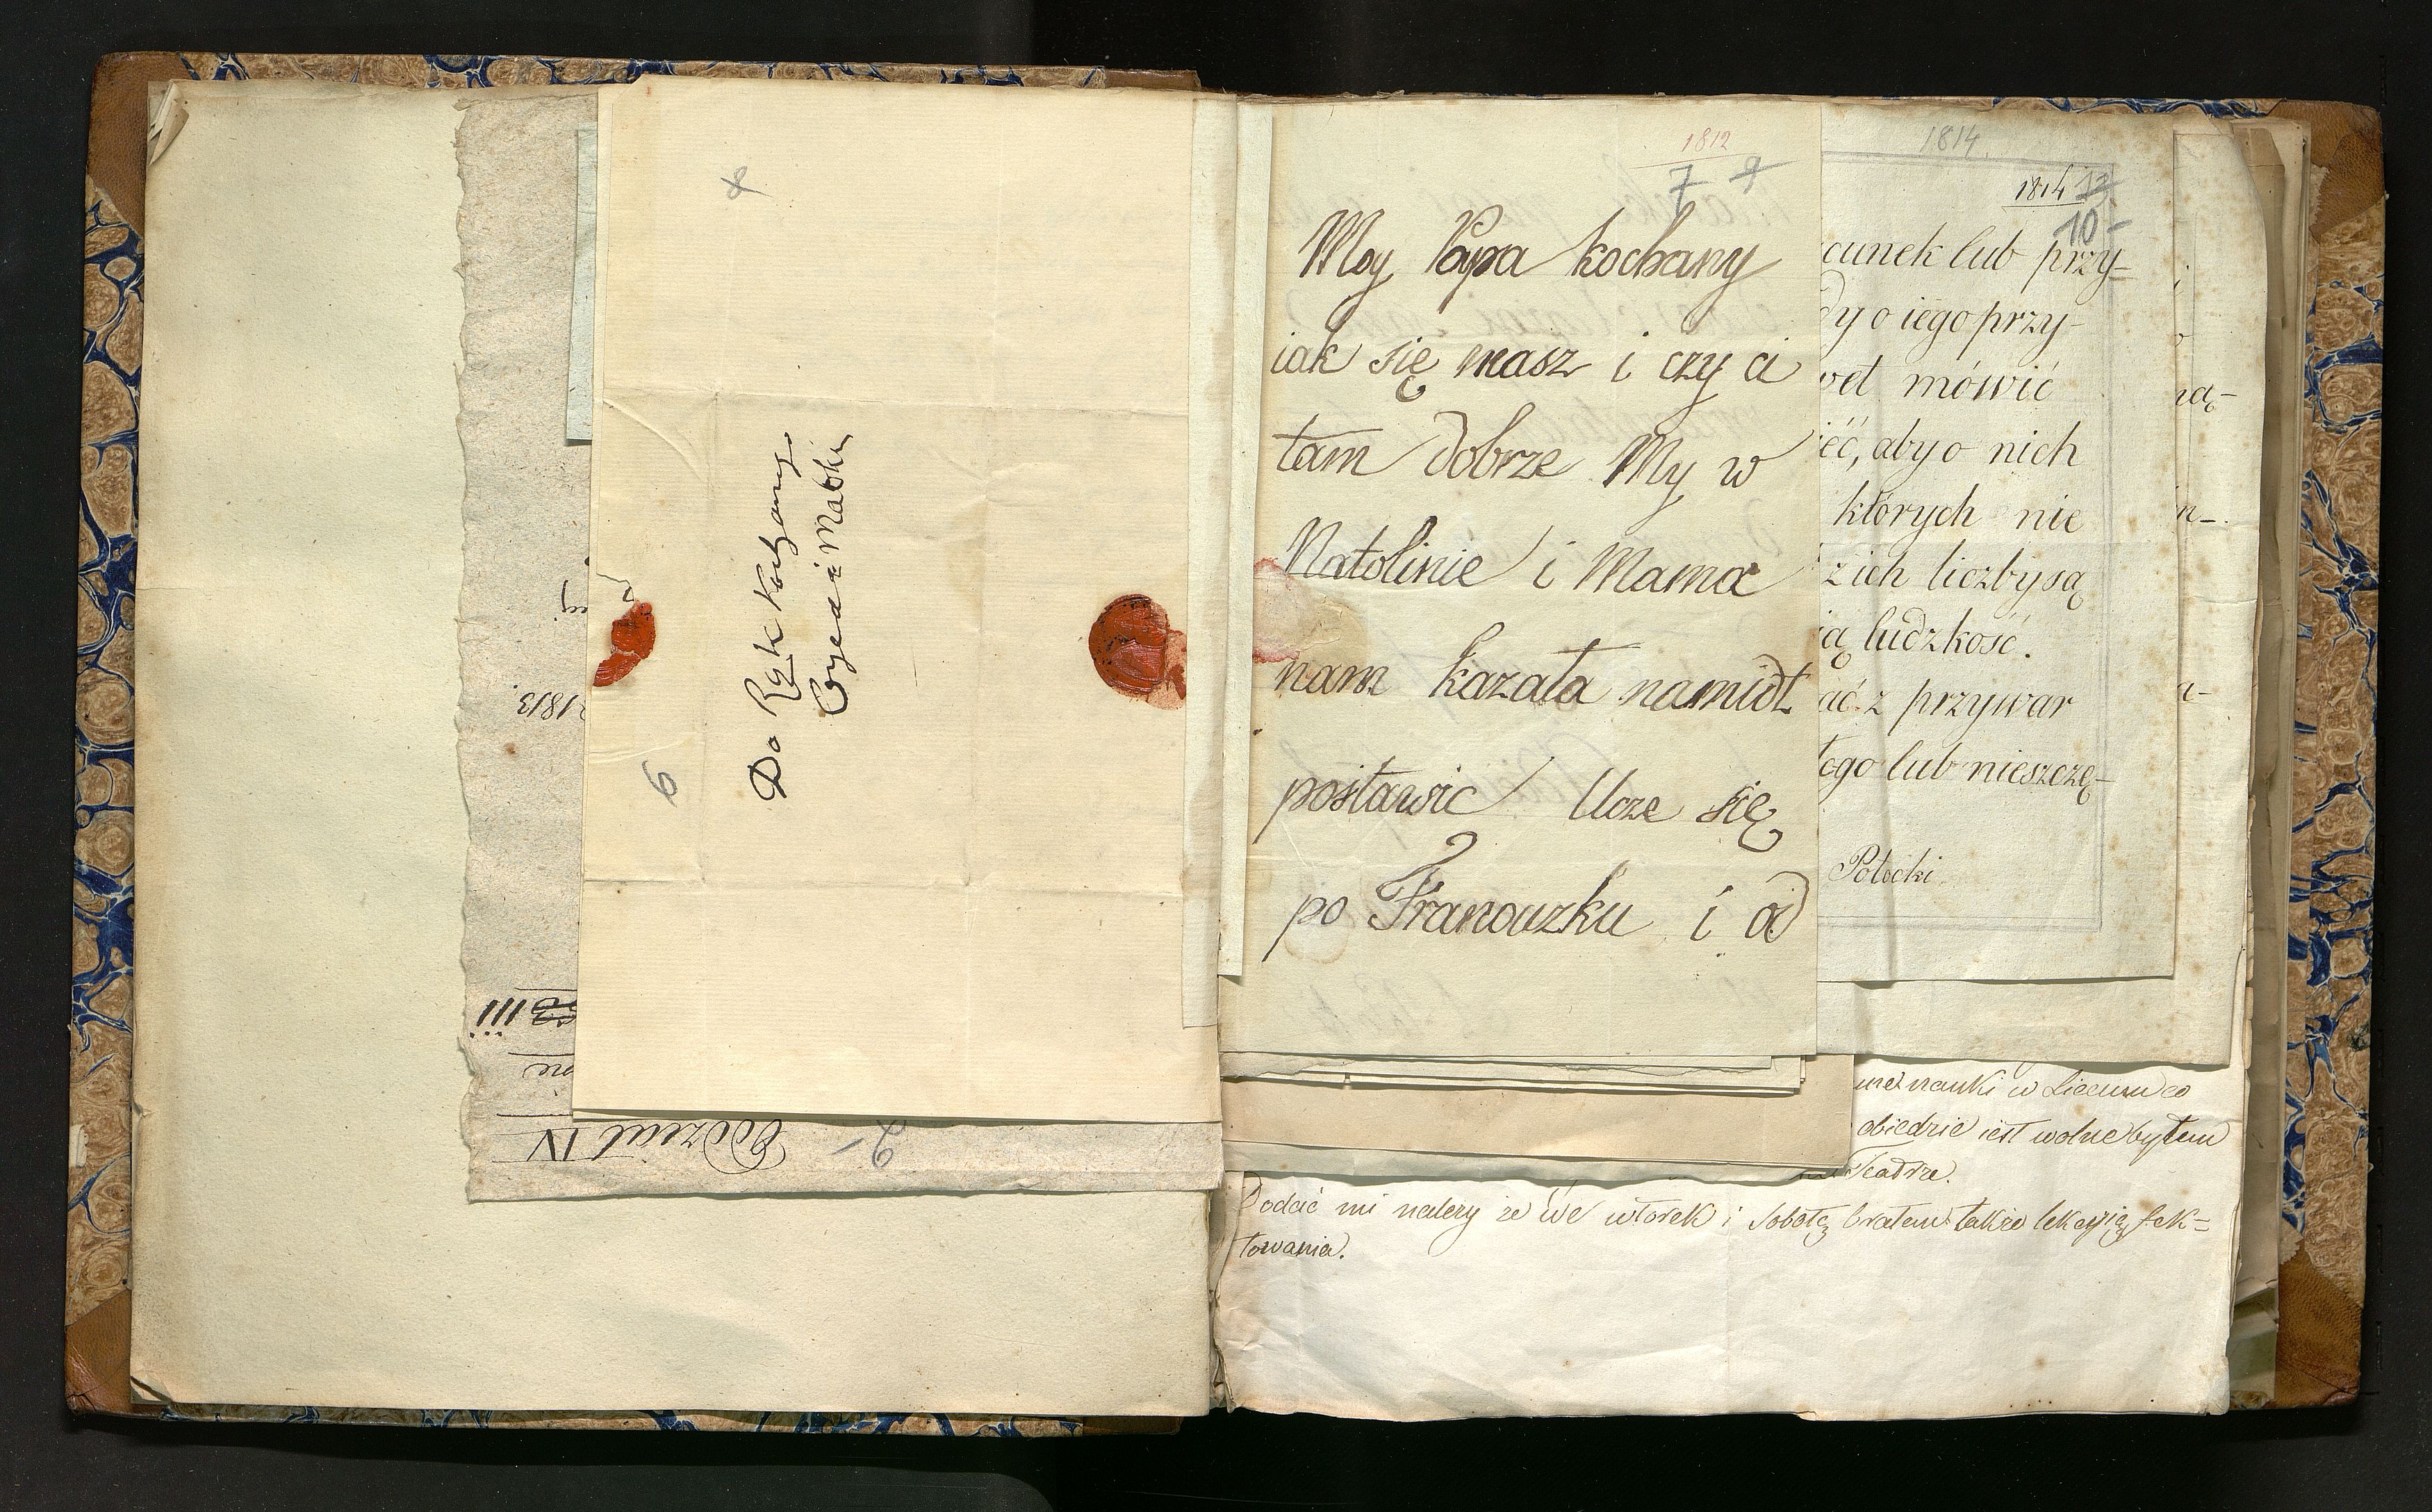 8
Do Rąk Kochanego
Oyca i Matki
6
1813
III
Oddział IV
2
1812
7 9
Moy Papa kochany
iak się masz i czy ci
tam dobrze My w
Natolinie i Mama
nam kazała namiot
postawic Ucze się
po Francuzku i od
1814
1814 13
10
cunek lub przy-
dy o iego przy-
wet mówić
ieć, aby o nich
których nie
z ich liczby są
ią ludzkość.
ać z przywar
łego lub nieszczę-
Potocki
nauki w Liceum co
obiedzie iest wolne byłem
Teatrze.
Dodać mi należy że we wtorek i Sobotę brałem także lekcyią fek=
towania.